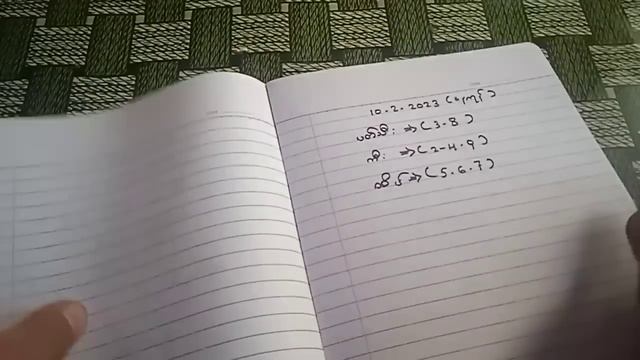 10.2.2023 (
ပတ်သီး ⇒ (3.8)
ကီး ⇒ (2-4.9)
ထိပ် ⇒ (5.6.7)